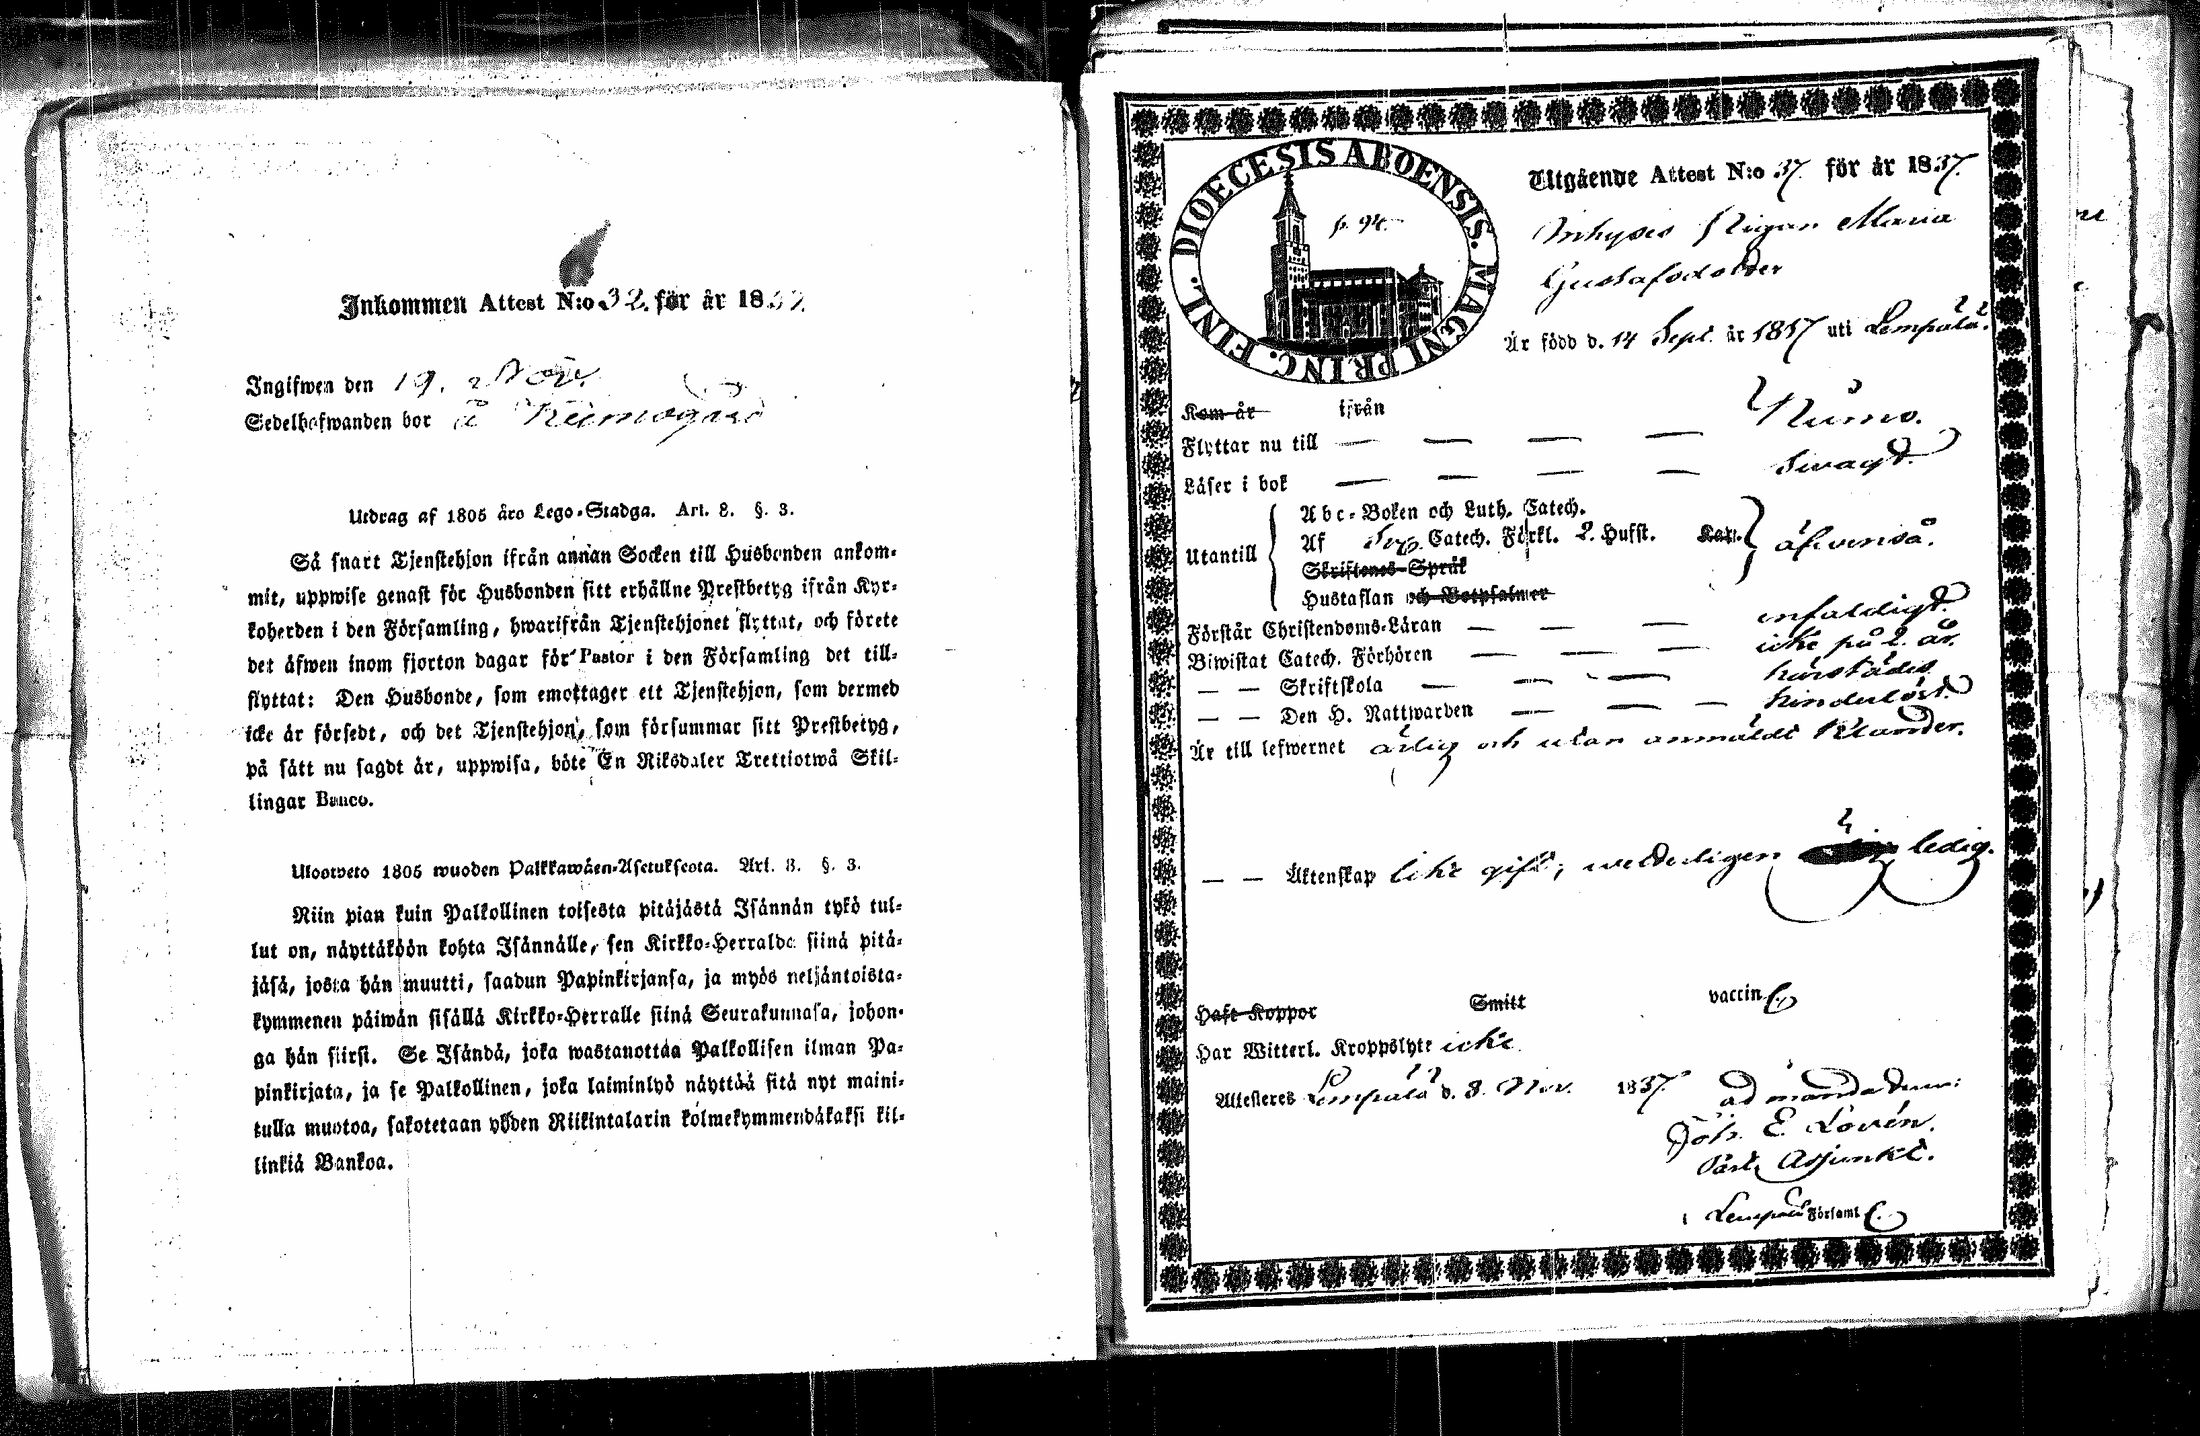 Inkommen Attest N:o 32. för år 1837.
Ingifwen den 19. Nov.
Sedelhafwanden bor å
Utdrag af 1805 års Lego-Stadga. Art. 8. §. 3.
Så snart Tjenstehjon ifrån annan Socken till Husbonden ankom-
mit, uppwise genast för Husbonden sitt erhållne Prestbetyg ifrån Kyr-
koherden i den Församling, hwarifrån Tjenstehjonet flyttat, och förete
det äfwen inom fjorton dagar för Pastor i den Församling det till-
flyttat: Den Husbonde, som emottager ett Tjenstehjon, som dermed
icke är försedt, och det Tjenstehjon, som försummar sitt Prestbetyg,
på sätt nu sagdt är, uppwisa, böte En Riksdaler Trettiotwå Skil-
lingar Banco.
Ulosweto 1805 wuoden Palkkawäen-Asetuksesta. Art. 8. §. 3.
Niin pian kuin Palkollinen toisesta pitäjästä Isännän tykö tul-
lut on, näyttäköön kohta Isännälle, sen Kirkko-Herralda siinä pitä-
jäsä, josta hän muutti, saadun Papinkirjansa, ja myös neljäntoista-
kymmenen päiwän sisällä Kirkko-Herralle siinä Seurakunnasa, johon-
ga hän siirsi. Se Isändä, joka wastanottaa Palkollisen ilman Pa-
pinkirjata, ja se Palkollinen, joka laiminlyö näyttää sitä nyt maini-
tulla muotoa, sakotetaan yhden Riikintalarin kolmekymmendäkaksi kil-
linkiä Bankoa.
DIOECESIS ABOENSIS. MAGNI PRINC. FINL.
p. 94.
Utgående Attest N:o 37. för år 1837.
Inhyses Pigan Maria
Gustafsdotter
Är född d. 14 Sept. år 1817 uti Lempälä.
Kom år ifrån
Flyttar nu till — — — — Kumo.
Läser i bok — — — — Swagt.
Utantill
Abc-Boken och Luth. Catech.
Af Catech. Förkl. 2. Hufst. Kap.
Skriftenes-Språk
Hustaflan och Botpsalmer
äfvenså.
Förstår Christendoms-Läran — — — enfaldigt.
Biwistat Catech. Förhören — — — icke på 2. år.
— — Skriftskola — — — härstädes
— — Den H. Nattwarden — — — hinderlöst.
Är till lefwernet ärlig och utan anmäldt klander.
— — Äktenskap icke gift; wederligen ledig.
Haft Koppor Smitt vaccin.
Har Witterl. Kroppslyte icke.
Attesteres Lempälä d. 8. Nov. 1837.
ad mandatum:
Joh. E. Lovén.
Past. Adjunkt.
i Lempälä Församl.